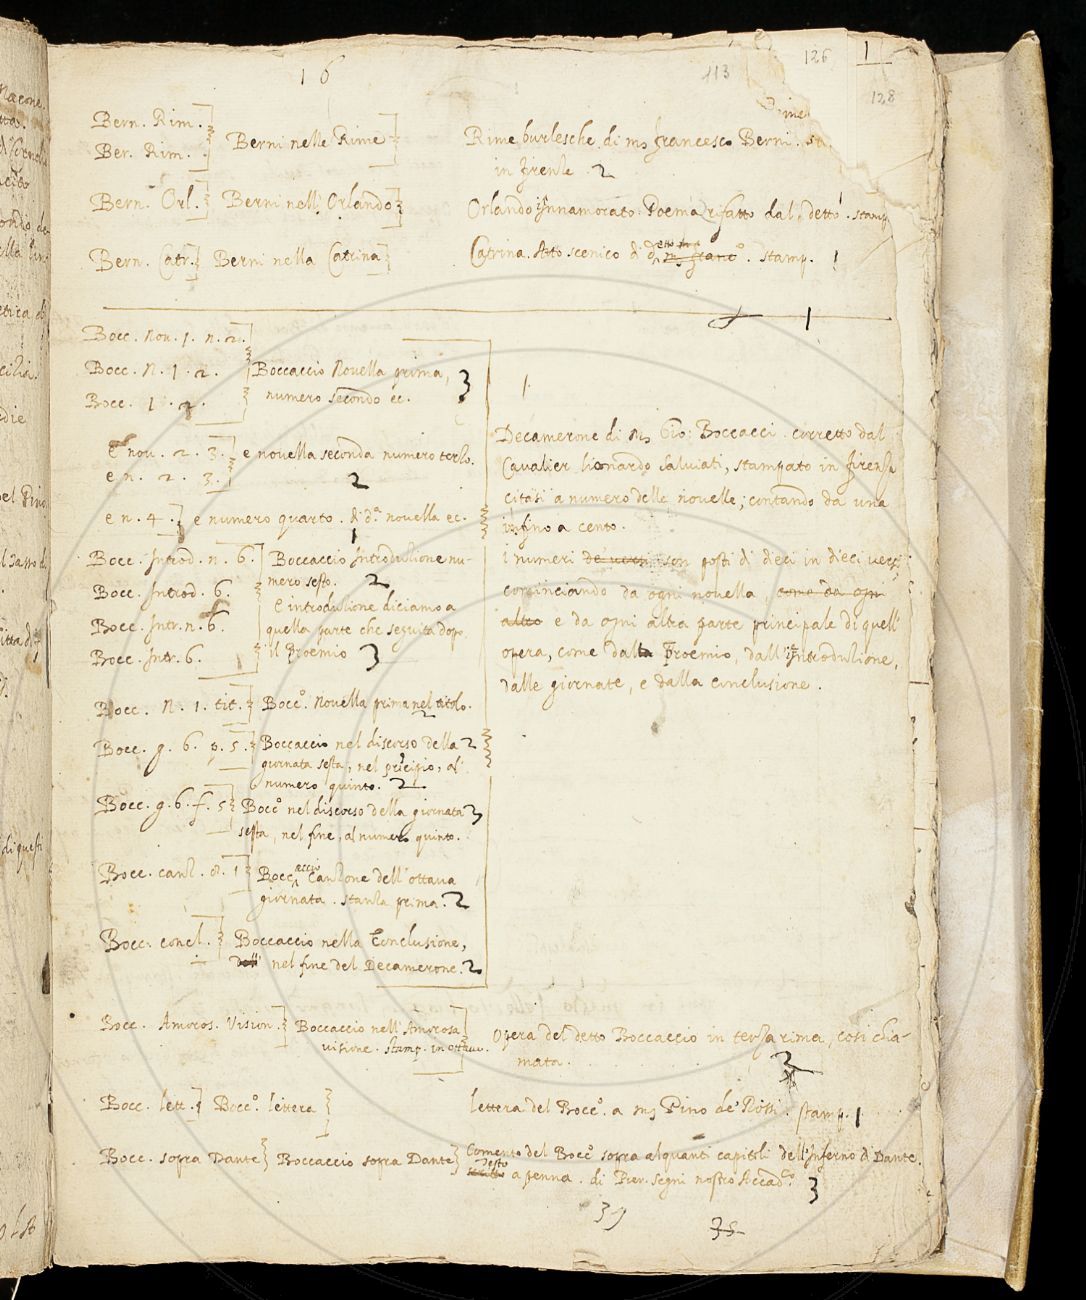 16
113
126
1
128
Bern. Rim.
Ber. Rim.
Berni nelle Rime
Rime
Rime burlesche di ms francesco Berni.
in firenze 2
Bern. Orl.
Berni nell' Orlando
Orlando Innamorato Poema rifatto dal detto. stamp
1
Bern. Catr.
Berni nella Catrina
Catrina. Atto scenico di d. etto ms franc°. stamp. 1
1
Bocc. Nov. 1. n. 2.
Bocc. N. 1. 2.
Bocc. 1. 2.
Boccaccio Novella prima, 3
numero secondo ec.
E nov. 2. 3.
e n. 2. 3.
e novella seconda numero terzo.
2
e n. 4.
e numero quarto. di d.ª novella ec.
1
Bocc. Introd. n. 6.
Bocc. Introd. 6.
Bocc. Intr. n. 6.
Bocc. Intr. 6.
Boccaccio Introduzione nu-
mero sesto. 2
E introduzione diciamo a
quella parte che seguita dopo
il Proemio 3
Bocc. N. 1. tit.
Bocc°. Novella prima nel titolo.
2
Bocc. g. 6. p. 5.
Boccaccio nel discorso della 2
giornata sesta, nel pricipio, al
numero quinto. 2
Bocc. g. 6. f. 5
Bocc° nel discorso della giornata 3
sesta, nel fine, al numero quinto.
Bocc. canz. 8. 1
Bocc accio Canzone dell' ottava
giornata. stanza prima. 2
Bocc. concl.
Boccaccio nella Conclusione,
dell' nel fine del Decamerone. 2
1.
Decamerone di Ms Gio: Boccacci. corretto dal
Cavalier Lionardo Salviati, stampato in firenze
citasi a numero delle novelle, contando da una
infino a cento.
I numeri de versi son posti di dieci in dieci versi,
cominciando da ogni novella, come da ogn
altro e da ogni altra parte principale di quell'
opera, come dalla Proemio, dall' Introduzione,
dalle giornate, e dalla conclusione.
Bocc. Amoros. Vision.
Boccaccio nell' Amorosa
visione. stamp. in ottavo.
Opera del detto Boccaccio in terza rima, così chia-
mata.
2
Bocc. lett.
Bocc°. lettera
lettera del Bocc°. a ms Pino de' Rossi. stamp. 1
Bocc. sopra Dante
Boccaccio sopra Dante
Comento del Bocc° sopra alquanti capitoli dell' Inferno di Dante.
testo a penna. di Pier. Segni nostro Accad.co 3
39